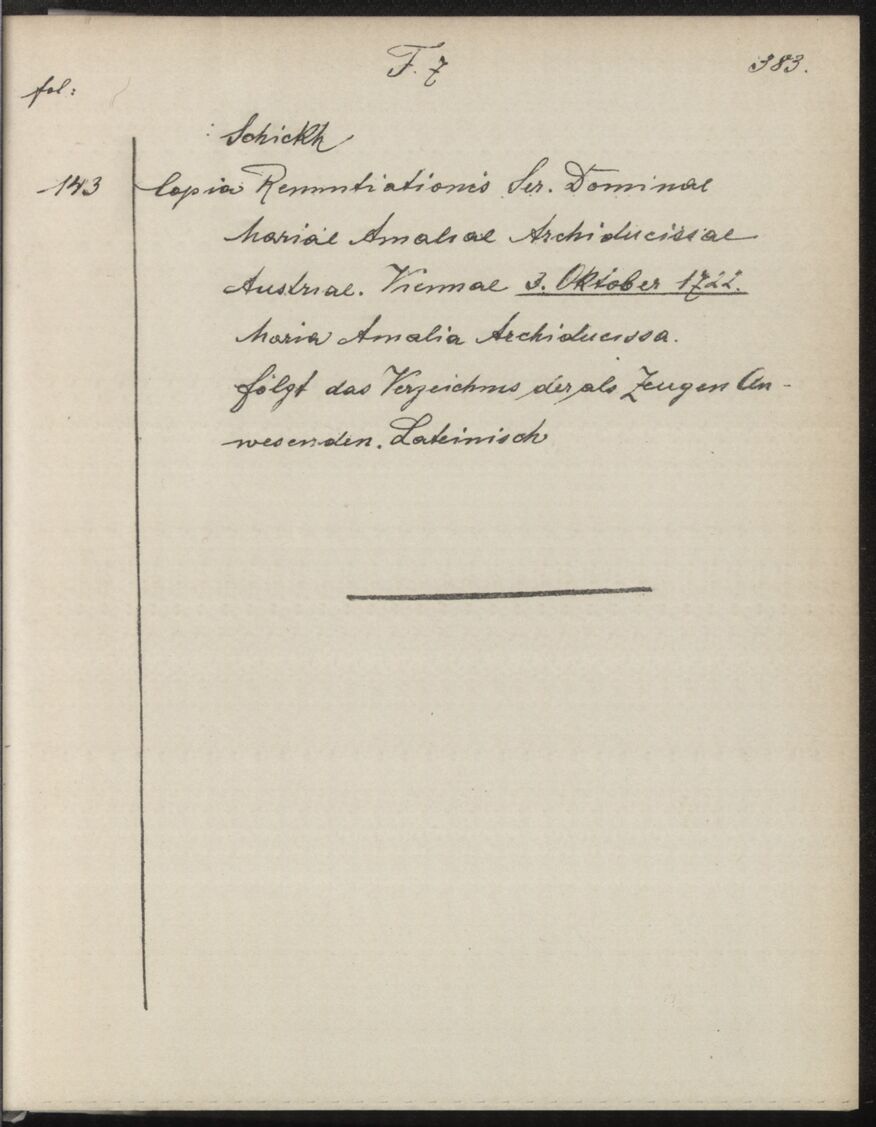 F. 7
383.
fol:
Schickh
143 Copia Renuntiationis Ser. Dominae
Mariae Amaliae Archiducissae
Austriae. Viennae 3. Oktober 1722.
Maria Amalia Archiducissa.
folgt das Verzeichnis der als Zeugen An-
wesenden. Lateinisch